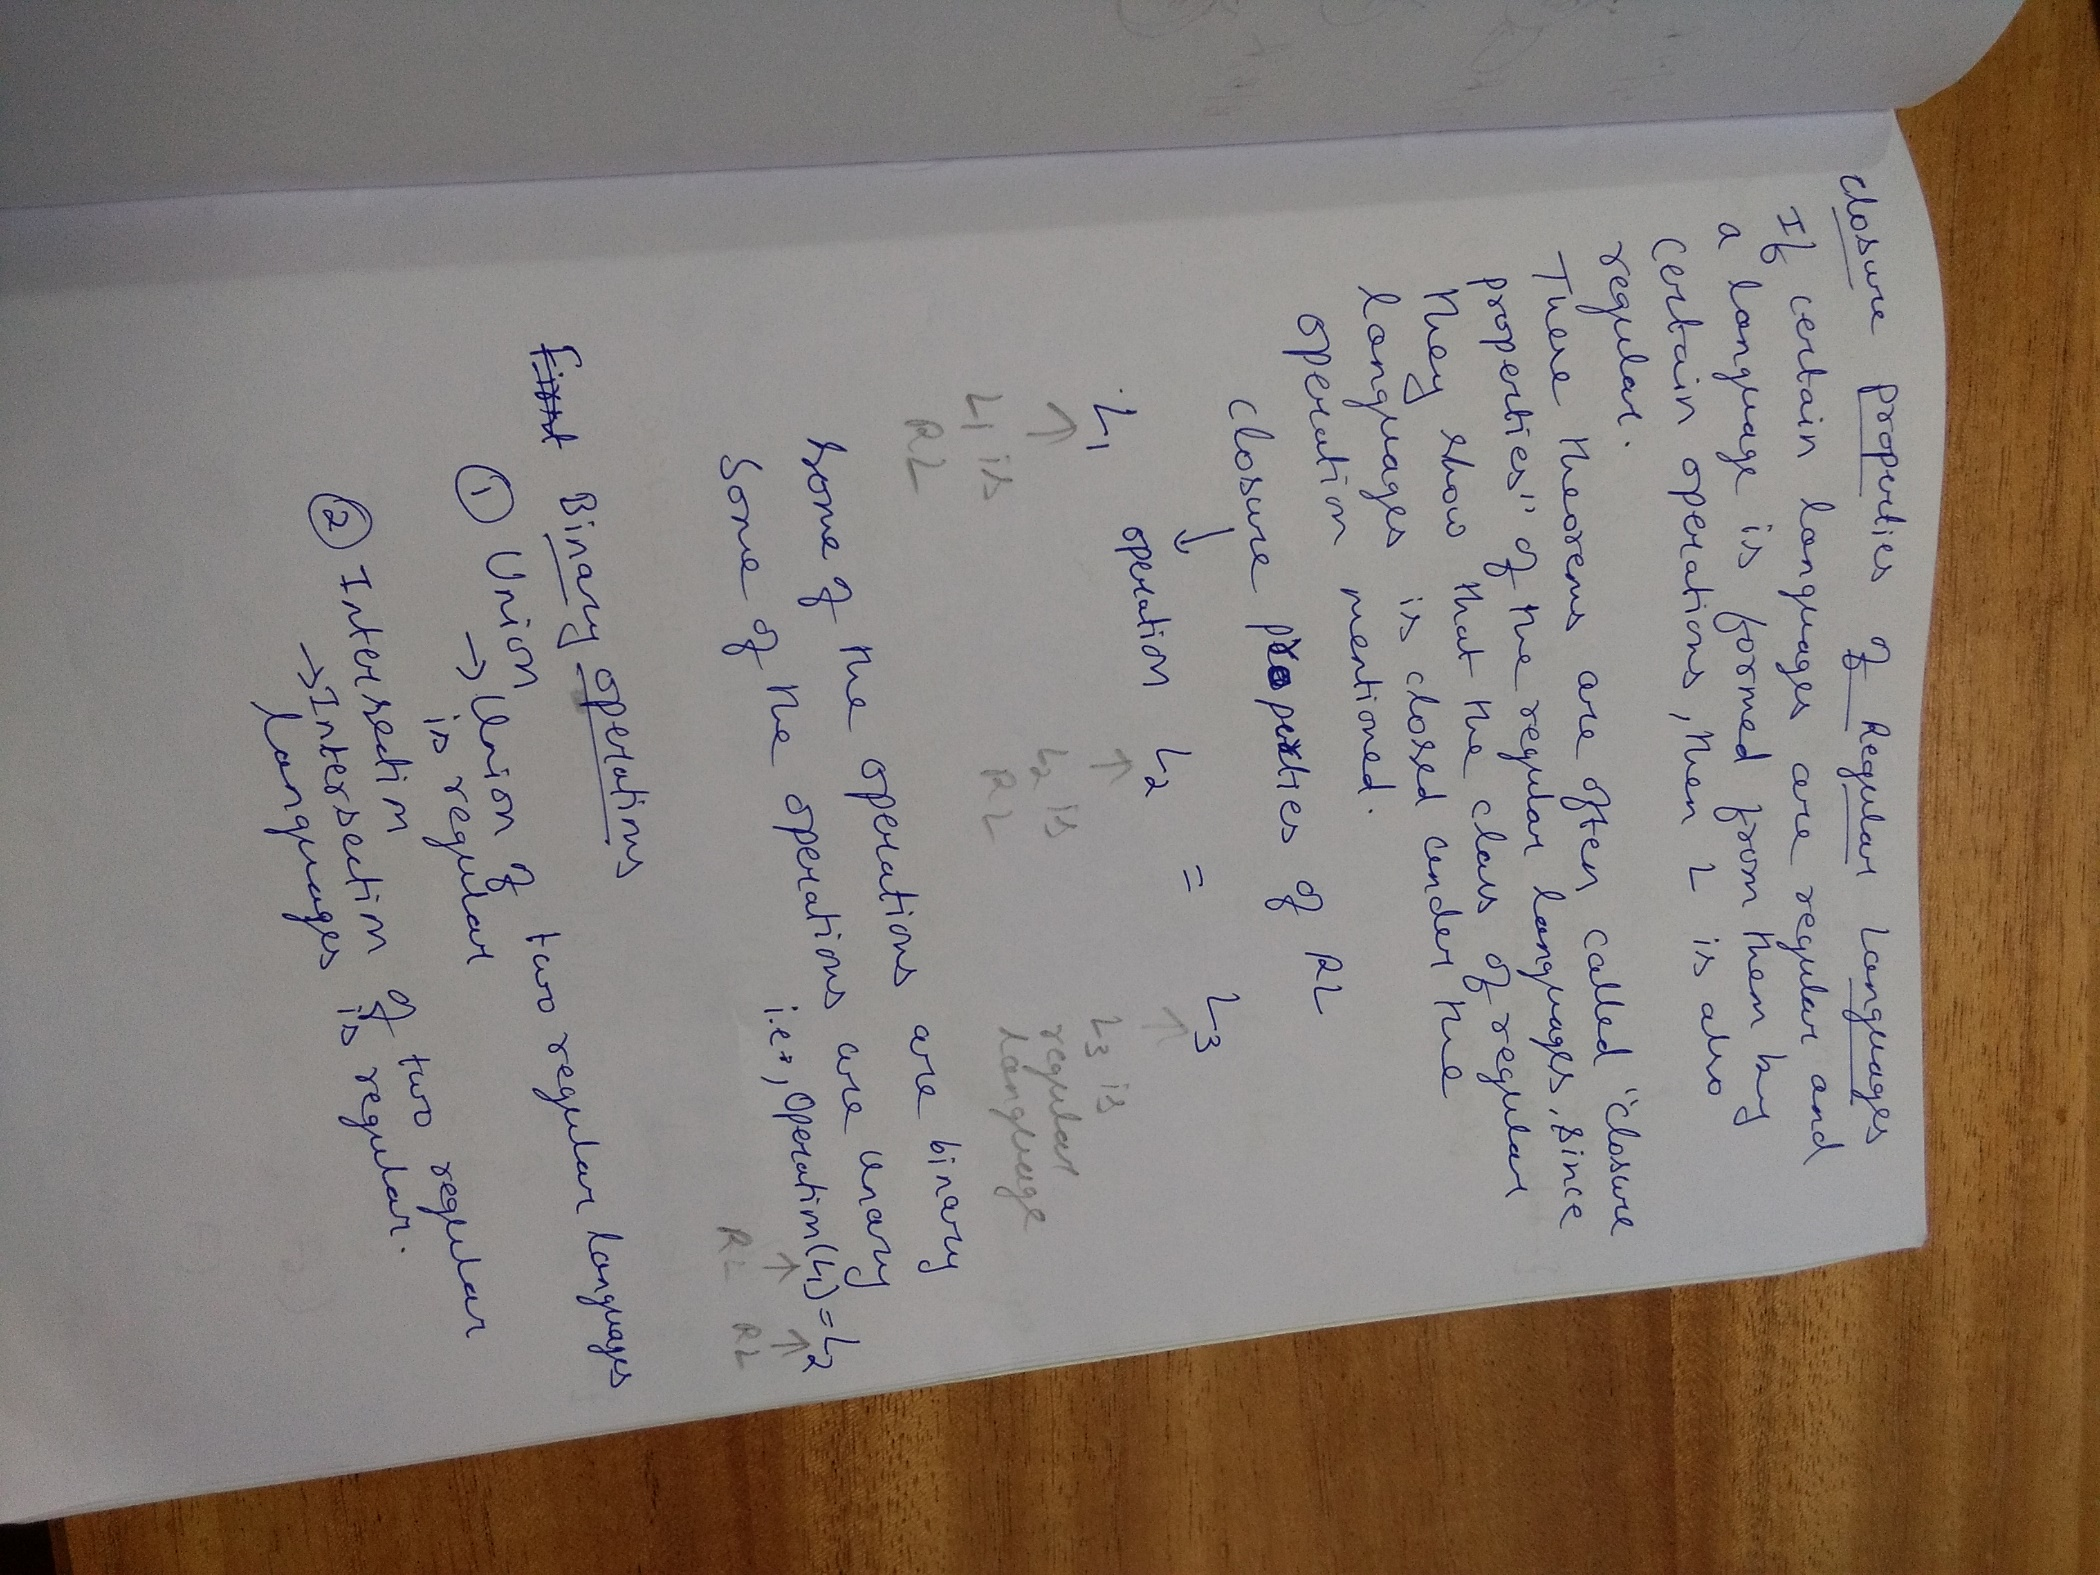 Closure Properties of Regular Languages
If certain languages are regular and
a language is formed from them by
certain operations, then L is also
regular.
These theorems are often called "closure
properties" of the regular languages, since
they show that the class of regular
languages is closed under the
operation mentioned.
closure properties of RL
↓
L1 operation L2 = L3
↑ ↑ ↑
L1 is L2 is L3 is
RL RL regular
language
Some of the operations are binary
Some of the operations are unary
i.e., operation(L1) = L2
↑ ↑
RL RL
First Binary operations
① Union
→ Union of two regular languages
is regular
② Intersection
→ Intersection of two regular
languages is regular.